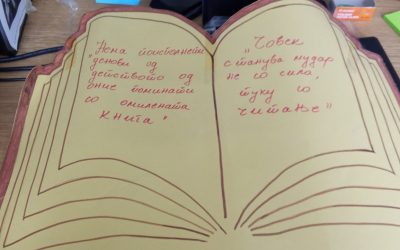 „Нема поисполнети
денови од
детството од
оние поминати
со омилената
книга"
„Човек
станува мудар
не со сила,
туку со
читање"